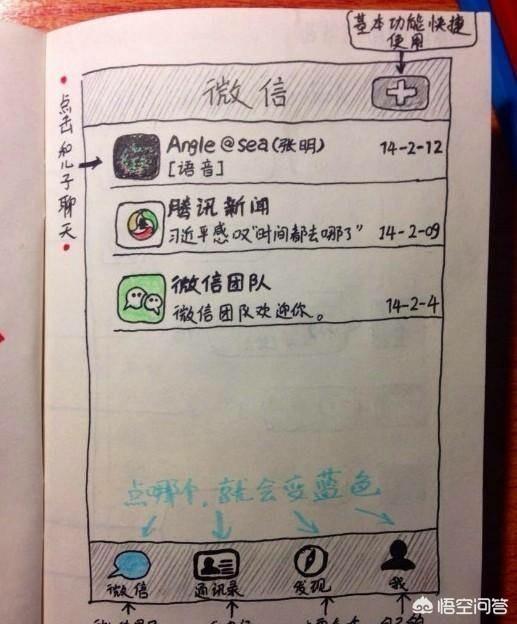 基本功能快捷
使用
微信
点击和儿子聊天
Angle@sea(张明)
14-2-12
[语音]
腾讯新闻
习近平感叹"时间都去哪了"
14-2-09
微信团队
微信团队欢迎你。
14-2-4
点哪个,就会变蓝色
微信
通讯录
发现
我
悟空问答